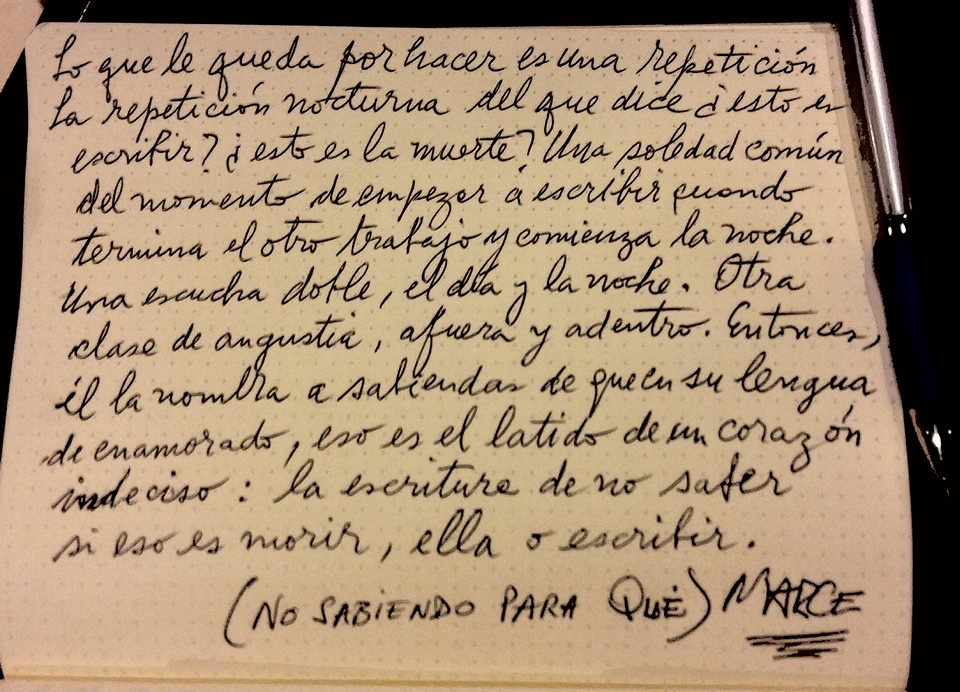 Lo que le queda por hacer es una repetición
La repetición nocturna del que dice ¿esto es
escribir? ¿esto es la muerte? Una soledad común
del momento de empezar a escribir cuando
termina el otro trabajo y comienza la noche.
Una escucha doble, el día y la noche. Otra
clase de angustia, afuera y adentro. Entonces,
él la nombra a sabiendas de que en su lengua
de enamorado, eso es el latido de un corazón
indeciso: la escritura de no saber
si eso es morir, ella o escribir.
(NO SABIENDO PARA QUÉ) MARCE